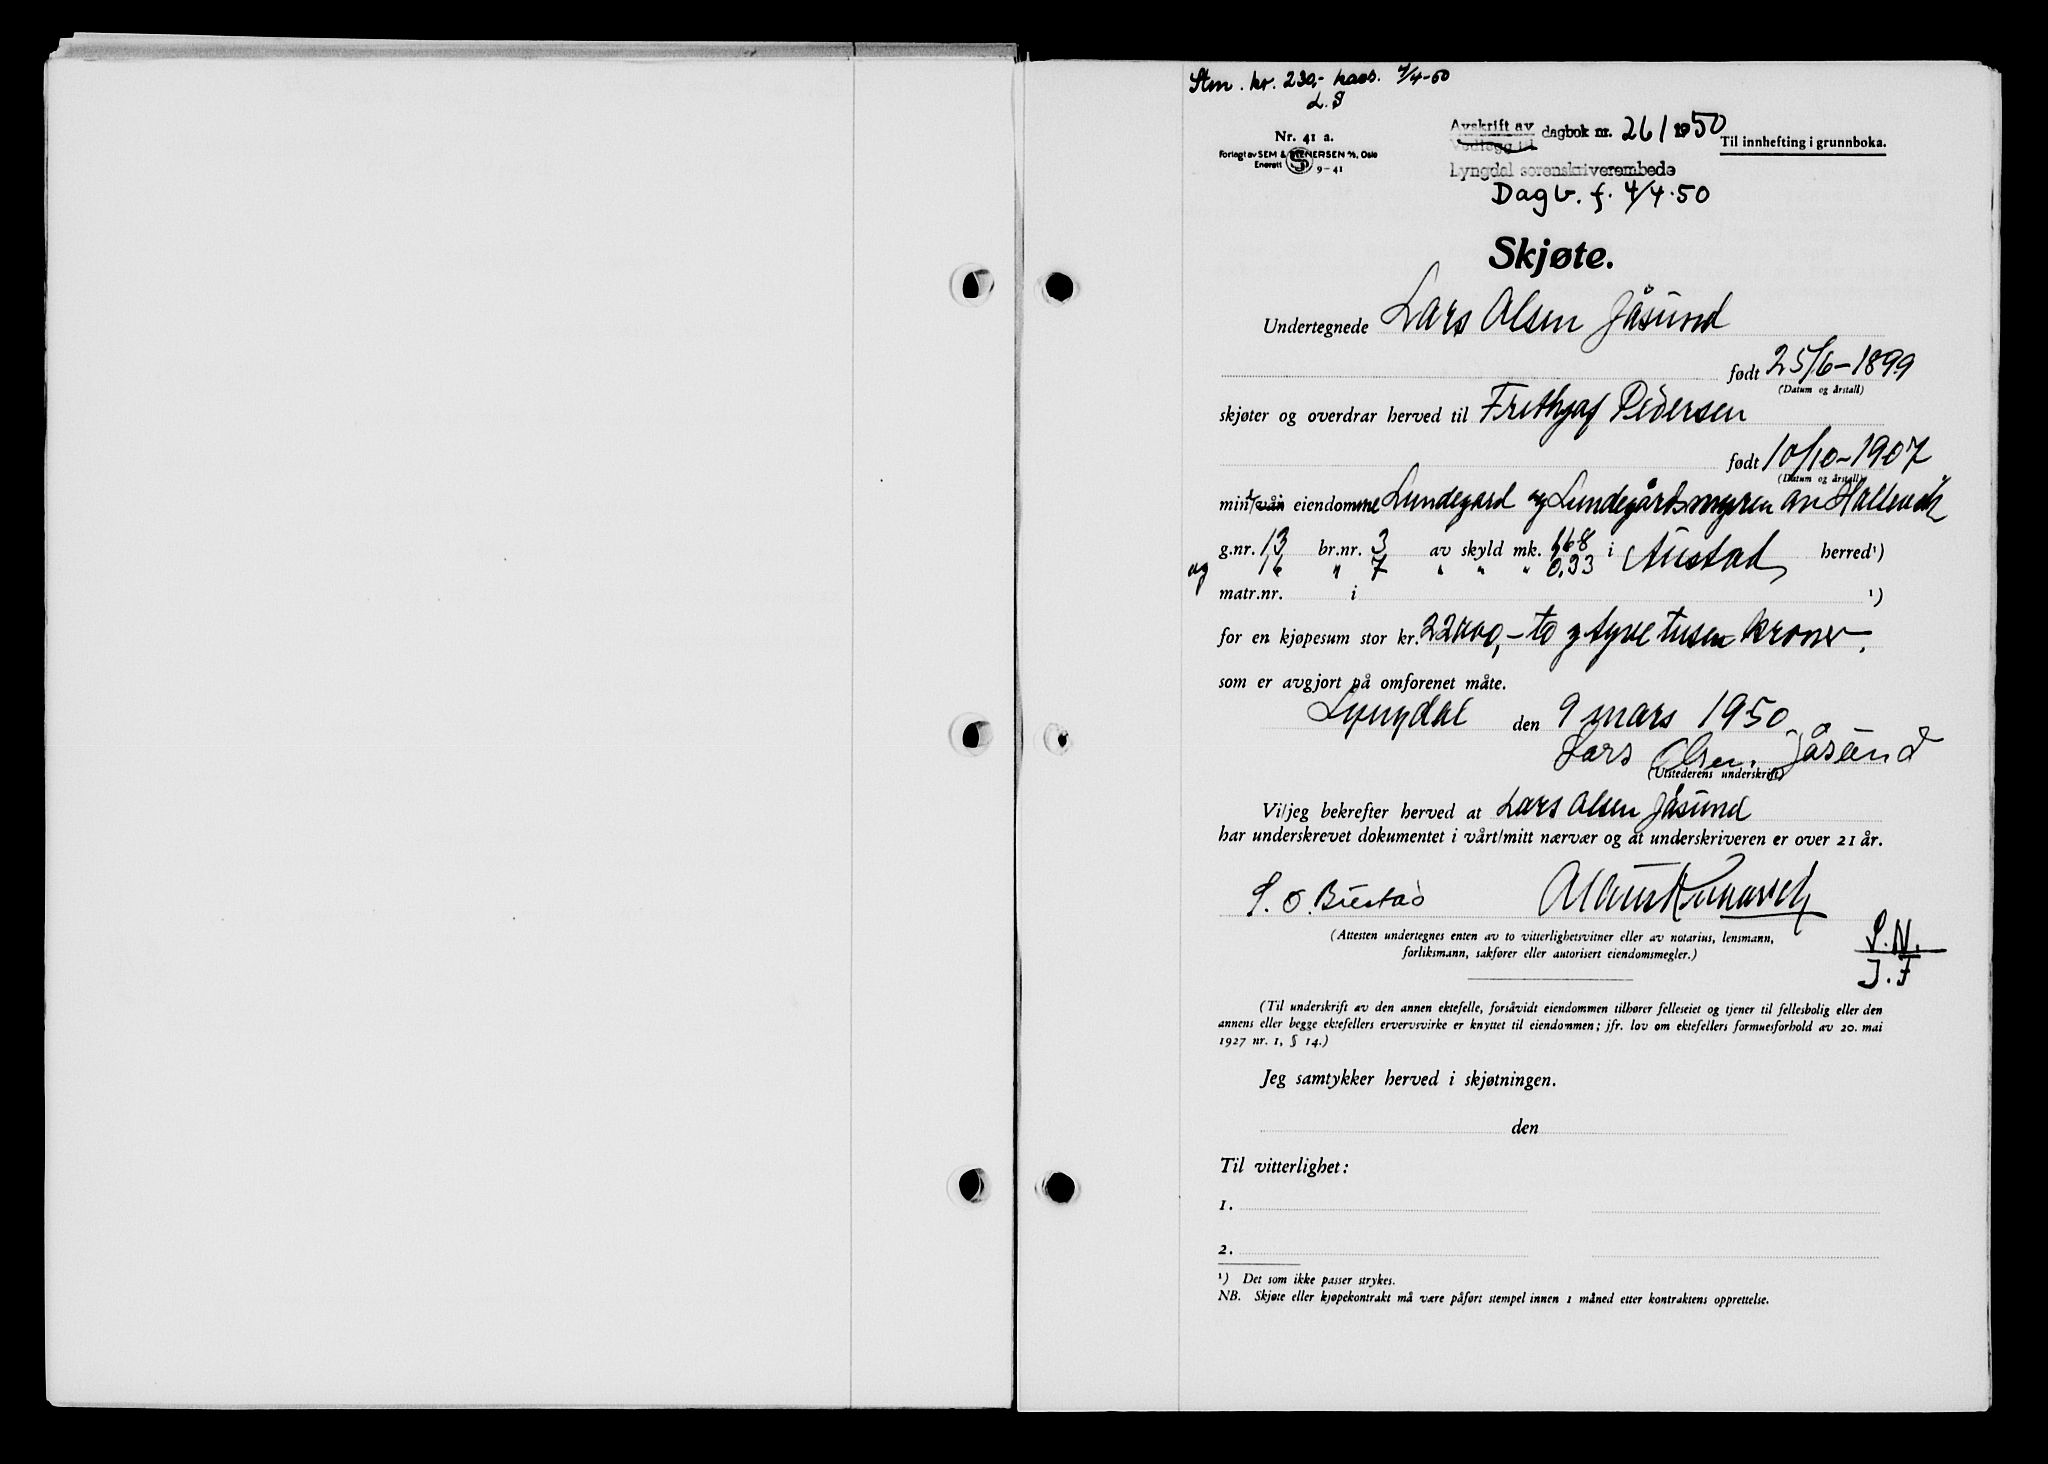 Stm. kr. 230,- kass. 4/4-50
L.S
Nr. 41 a.
Forlagt av SEM & STENERSEN A/S, Oslo
Enerett 9-41
Avskrift av dagbok nr. 261 1950
Vedlegg til
Til innhefting i grunnboka.
Lyngdal sorenskriverembede
Dagb. f. 4/4.50
Skjøte.
Undertegnede Lars Olsen Jåsund
født 25/6-1899
(Datum og årstall)
skjøter og overdrar herved til Frithjof Pedersen
født 10/10-1907
(Datum og årstall)
min/vår eiendomme Lundegard og Lundegårdsmyren av
g.nr. 13 br.nr. 3 av skyld mk. 1,68 i Austad herred¹)
og 16 " 7 " " " 0,33
matr.nr. i ¹)
for en kjøpesum stor kr. 22000,- to og tyve tusen kroner.
som er avgjort på omforenet måte.
Lyngdal den 9 mars 1950
Lars Olsen Jåsund
(Utstederens underskrift)
Vi/jeg bekrefter herved at Lars Olsen Jåsund
har underskrevet dokumentet i vårt/mitt nærvær og at underskriveren er over 21 år.
S. O. Buestad
(Attesten undertegnes enten av to vitterlighetsvitner eller av notarius, lensmann,
forliksmann, sakfører eller autorisert eiendomsmegler.)
S.N.
J.F
(Til underskrift av den annen ektefelle, forsåvidt eiendommen tilhører felleseiet og tjener til fellesbolig eller den
annens eller begge ektefellers ervervsvirke er knyttet til eiendommen; jfr. lov om ektefellers formuesforhold av 20. mai
1927 nr. 1, § 14.)
Jeg samtykker herved i skjøtningen.
den
Til vitterlighet:
1.
2.
¹) Det som ikke passer strykes.
NB. Skjøte eller kjøpekontrakt må være påført stempel innen 1 måned etter kontraktens opprettelse.